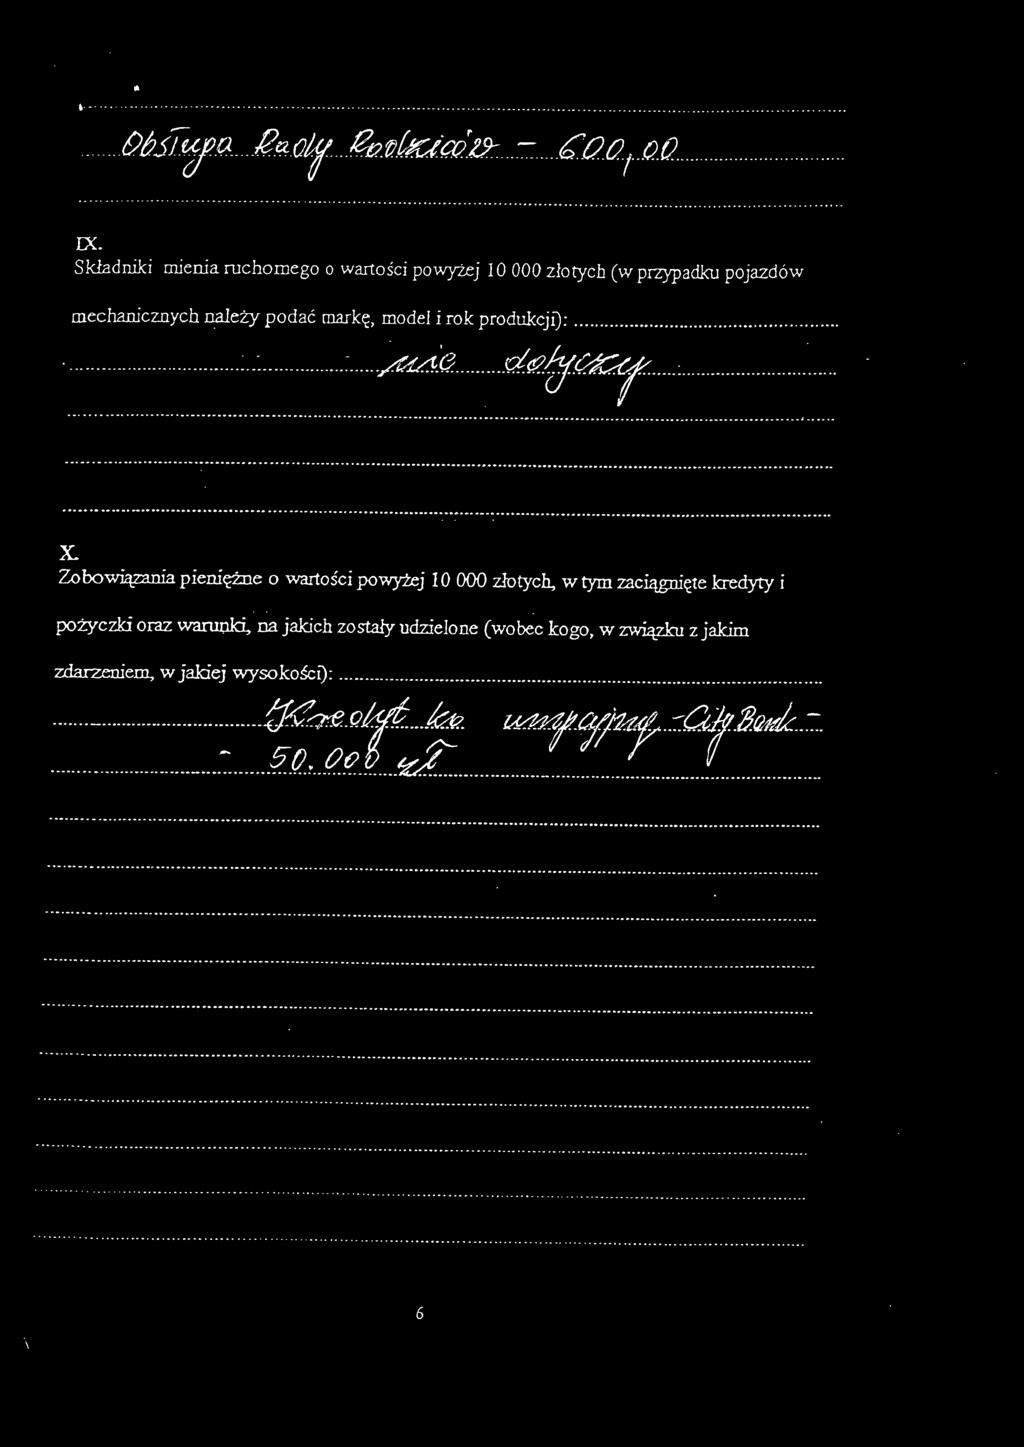 Obsługa Rady Rodziców - 600,00
IX.
Składniki mienia ruchomego o wartości powyżej 10 000 złotych (w przypadku pojazdów
mechanicznych należy podać markę, model i rok produkcji):
nie dotyczy
X.
Zobowiązania pieniężne o wartości powyżej 10 000 złotych, w tym zaciągnięte kredyty i
pożyczki oraz warunki, na jakich zostały udzielone (wobec kogo, w związku z jakim
zdarzeniem, w jakiej wysokości):
Kredyt - City Bank -
- 50.000 zł
6